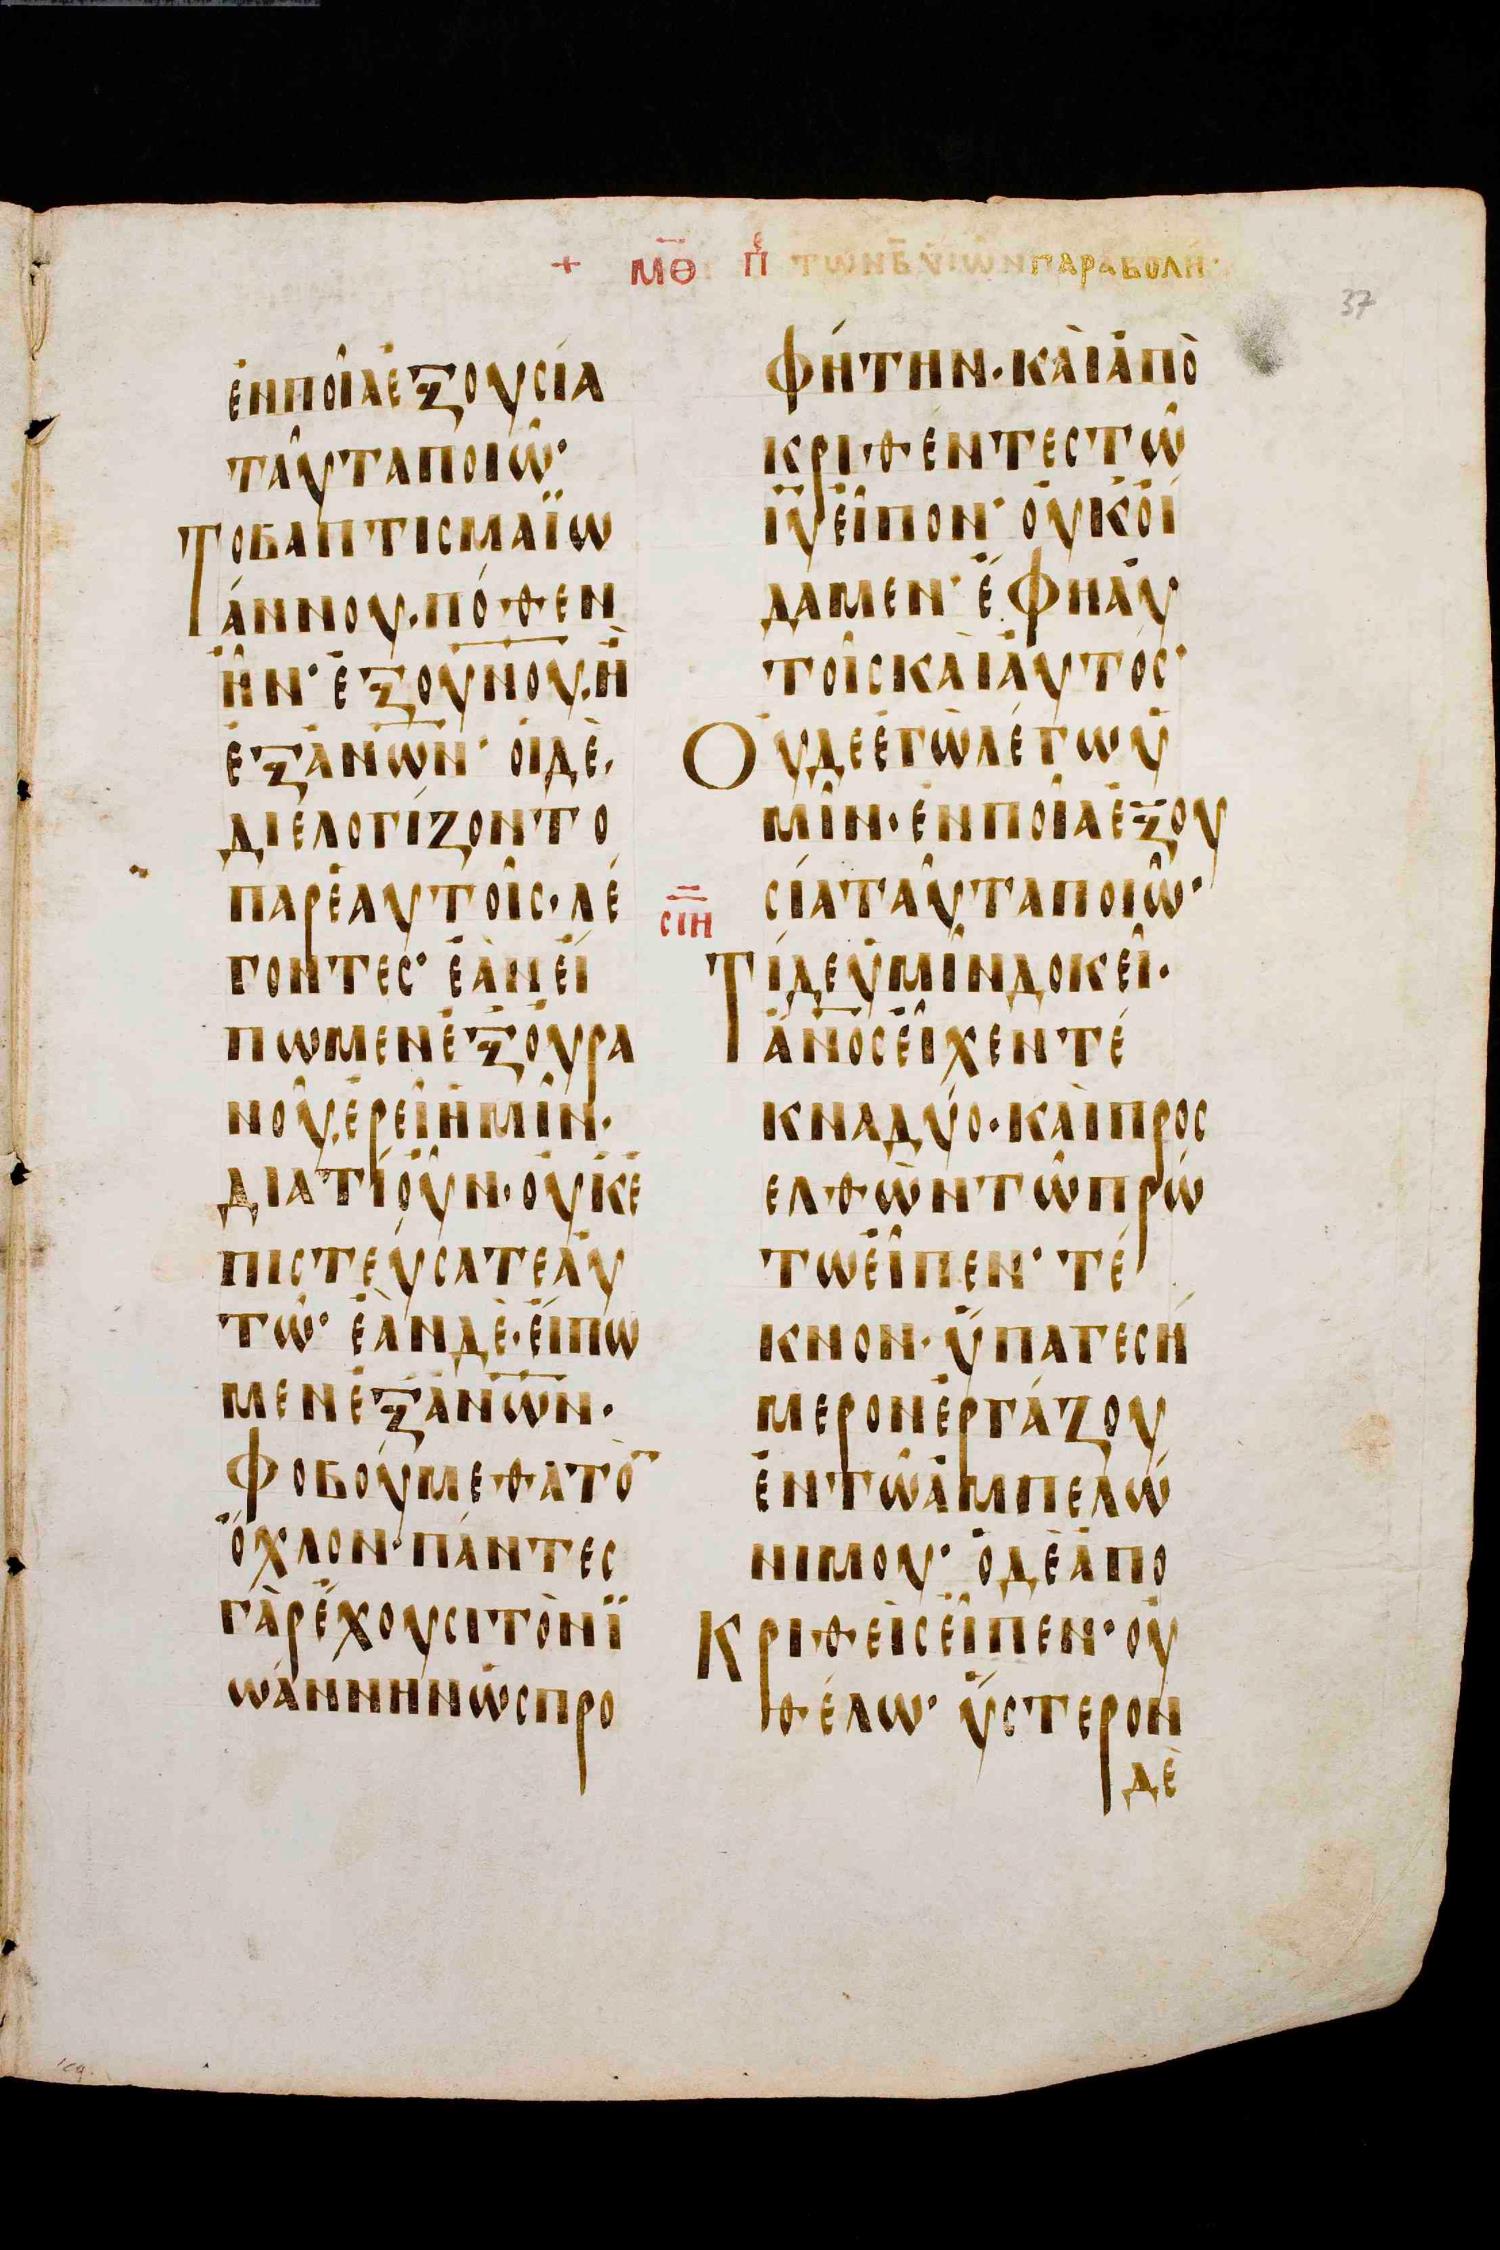 + ΜΘ Π̇ ΤΩΝ Β̅ ΥΙΩΝ ΠΑΡΑΒΟΛΗ·
37
ἐΝΠΟίΑἐΞΟΥΣίΑ
ΤΑῦΤΑΠΟΙῶ·
ΤΟΒΑΠΤΙΣΜΑΪΩ
άΝΝΟΥ·Πό ΘΕΝ
ἦΝ· ἐΞΟΥ̅Ν̅Ο̅Υ̅·ἢ
ἐΞἀ̅Ν̅Ω̅Ν̅· ΟἱΔὲ,
ΔΙΕΛΟΓίΖΟΝΤΟ
ΠΑΡἑΑΥΤΟῖΣ·Λέ
ΓΟΝΤΕΣ· ἐὰΝΕἴ
ΠΩΜΕΝἐΞΟὐΡΑ
ΝΟῦ·ἐΡΕῖἡΜῖΝ·
ΔΙΑΤίΟὖΝ·ΟὐΚἐ
ΠΙΣΤΕύΣΑΤΕΑὐ
Τῷ· ἐὰΝΔὲ·ΕἴΠΩ
ΜΕΝἐΞἀ̅Ν̅Ω̅Ν̅·
ΦΟΒΟύΜΕΘΑΤὸ̅
ὄΧΛΟΝ·ΠάΝΤΕΣ
ΓὰΡἔΧΟΥΣΙΤὸΝΪ
ΩάΝΝΗΝὡΣΠΡΟ
ΦήΤΗΝ·ΚΑὶἀΠΟ
ΚΡΙΘέΝΤΕΣΤῶ
Ι̅Υ̅ΕἶΠΟΝ· ΟὐΚΟἴ
ΔΑΜΕΝ· ἔΦΗΑὐ
ΤΟῖΣΚΑὶΑὐΤόΣ·
ΟΥΔΕἐΓὼΛέΓΩὑ
ΜῖΝ·ἐΝΠΟίΑἐΞΟΥ
ΣίΑΤΑῦΤΑΠΟΙῶ·
ΣΙΗ
ΤίΔΕὑΜῖΝΔΟΚΕῖ·
ἄ̅Ν̅Ο̅Σ̅ΕἶΧΕΝΤέ
ΚΝΑΔύΟ·ΚΑὶΠΡΟΣ
ΕΛΘὼΝΤῶΠΡώ
ΤΩΕἶΠΕΝ· Τέ
ΚΝΟΝ·ὕΠΑΓΕΣή
ΜΕΡΟΝἐΡΓάΖΟΥ
ἐΝΤῶἀΜΠΕΛῶ
ΝΙΜΟΥ· ὁΔὲἀΠΟ
ΚΡΙΘΕὶΣΕἶΠΕΝ·Οὐ
ΘέΛΩ· ὕΣΤΕΡΟΝ
Δὲ